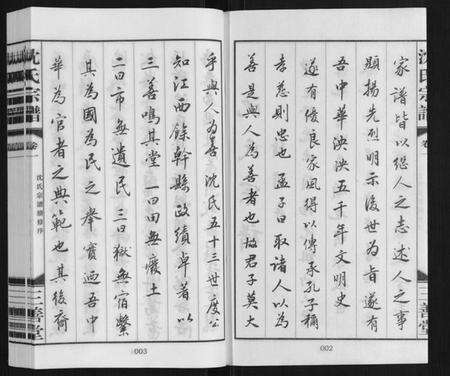 家譜皆以繼人之志述人之事
顯揚先烈明示後世為旨遂有
吾中華泱泱五千年文明史
遂有優良家風得以傳承孔子稱
孝慈則忠也孟子曰取諸人以為
善是與人為善者也故君子莫大
002
乎與人為善沈氏五十三世度公
知江西餘幹縣政績卓著以
三善鳴其堂一曰田無廢土
二曰市無遺民三曰獄無宿繫
其為國為民之舉實迺吾中
華為官者之典範也其後裔
003
沈氏宗譜
卷一
沈氏宗譜續修序
三善堂
沈氏宗譜
卷一
三善堂